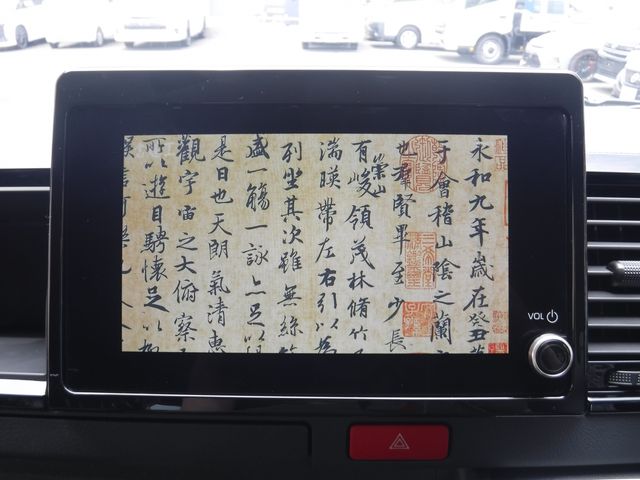 永和九年歲在癸丑
于會稽山陰之蘭
也羣賢畢至少長
有崇山峻領茂林脩竹
湍暎帶左右引以為
列坐其次雖無絲
盛一觴一詠亦足以
是日也天朗氣清惠
觀宇宙之大俯察
所以遊目騁懷足以
VOL